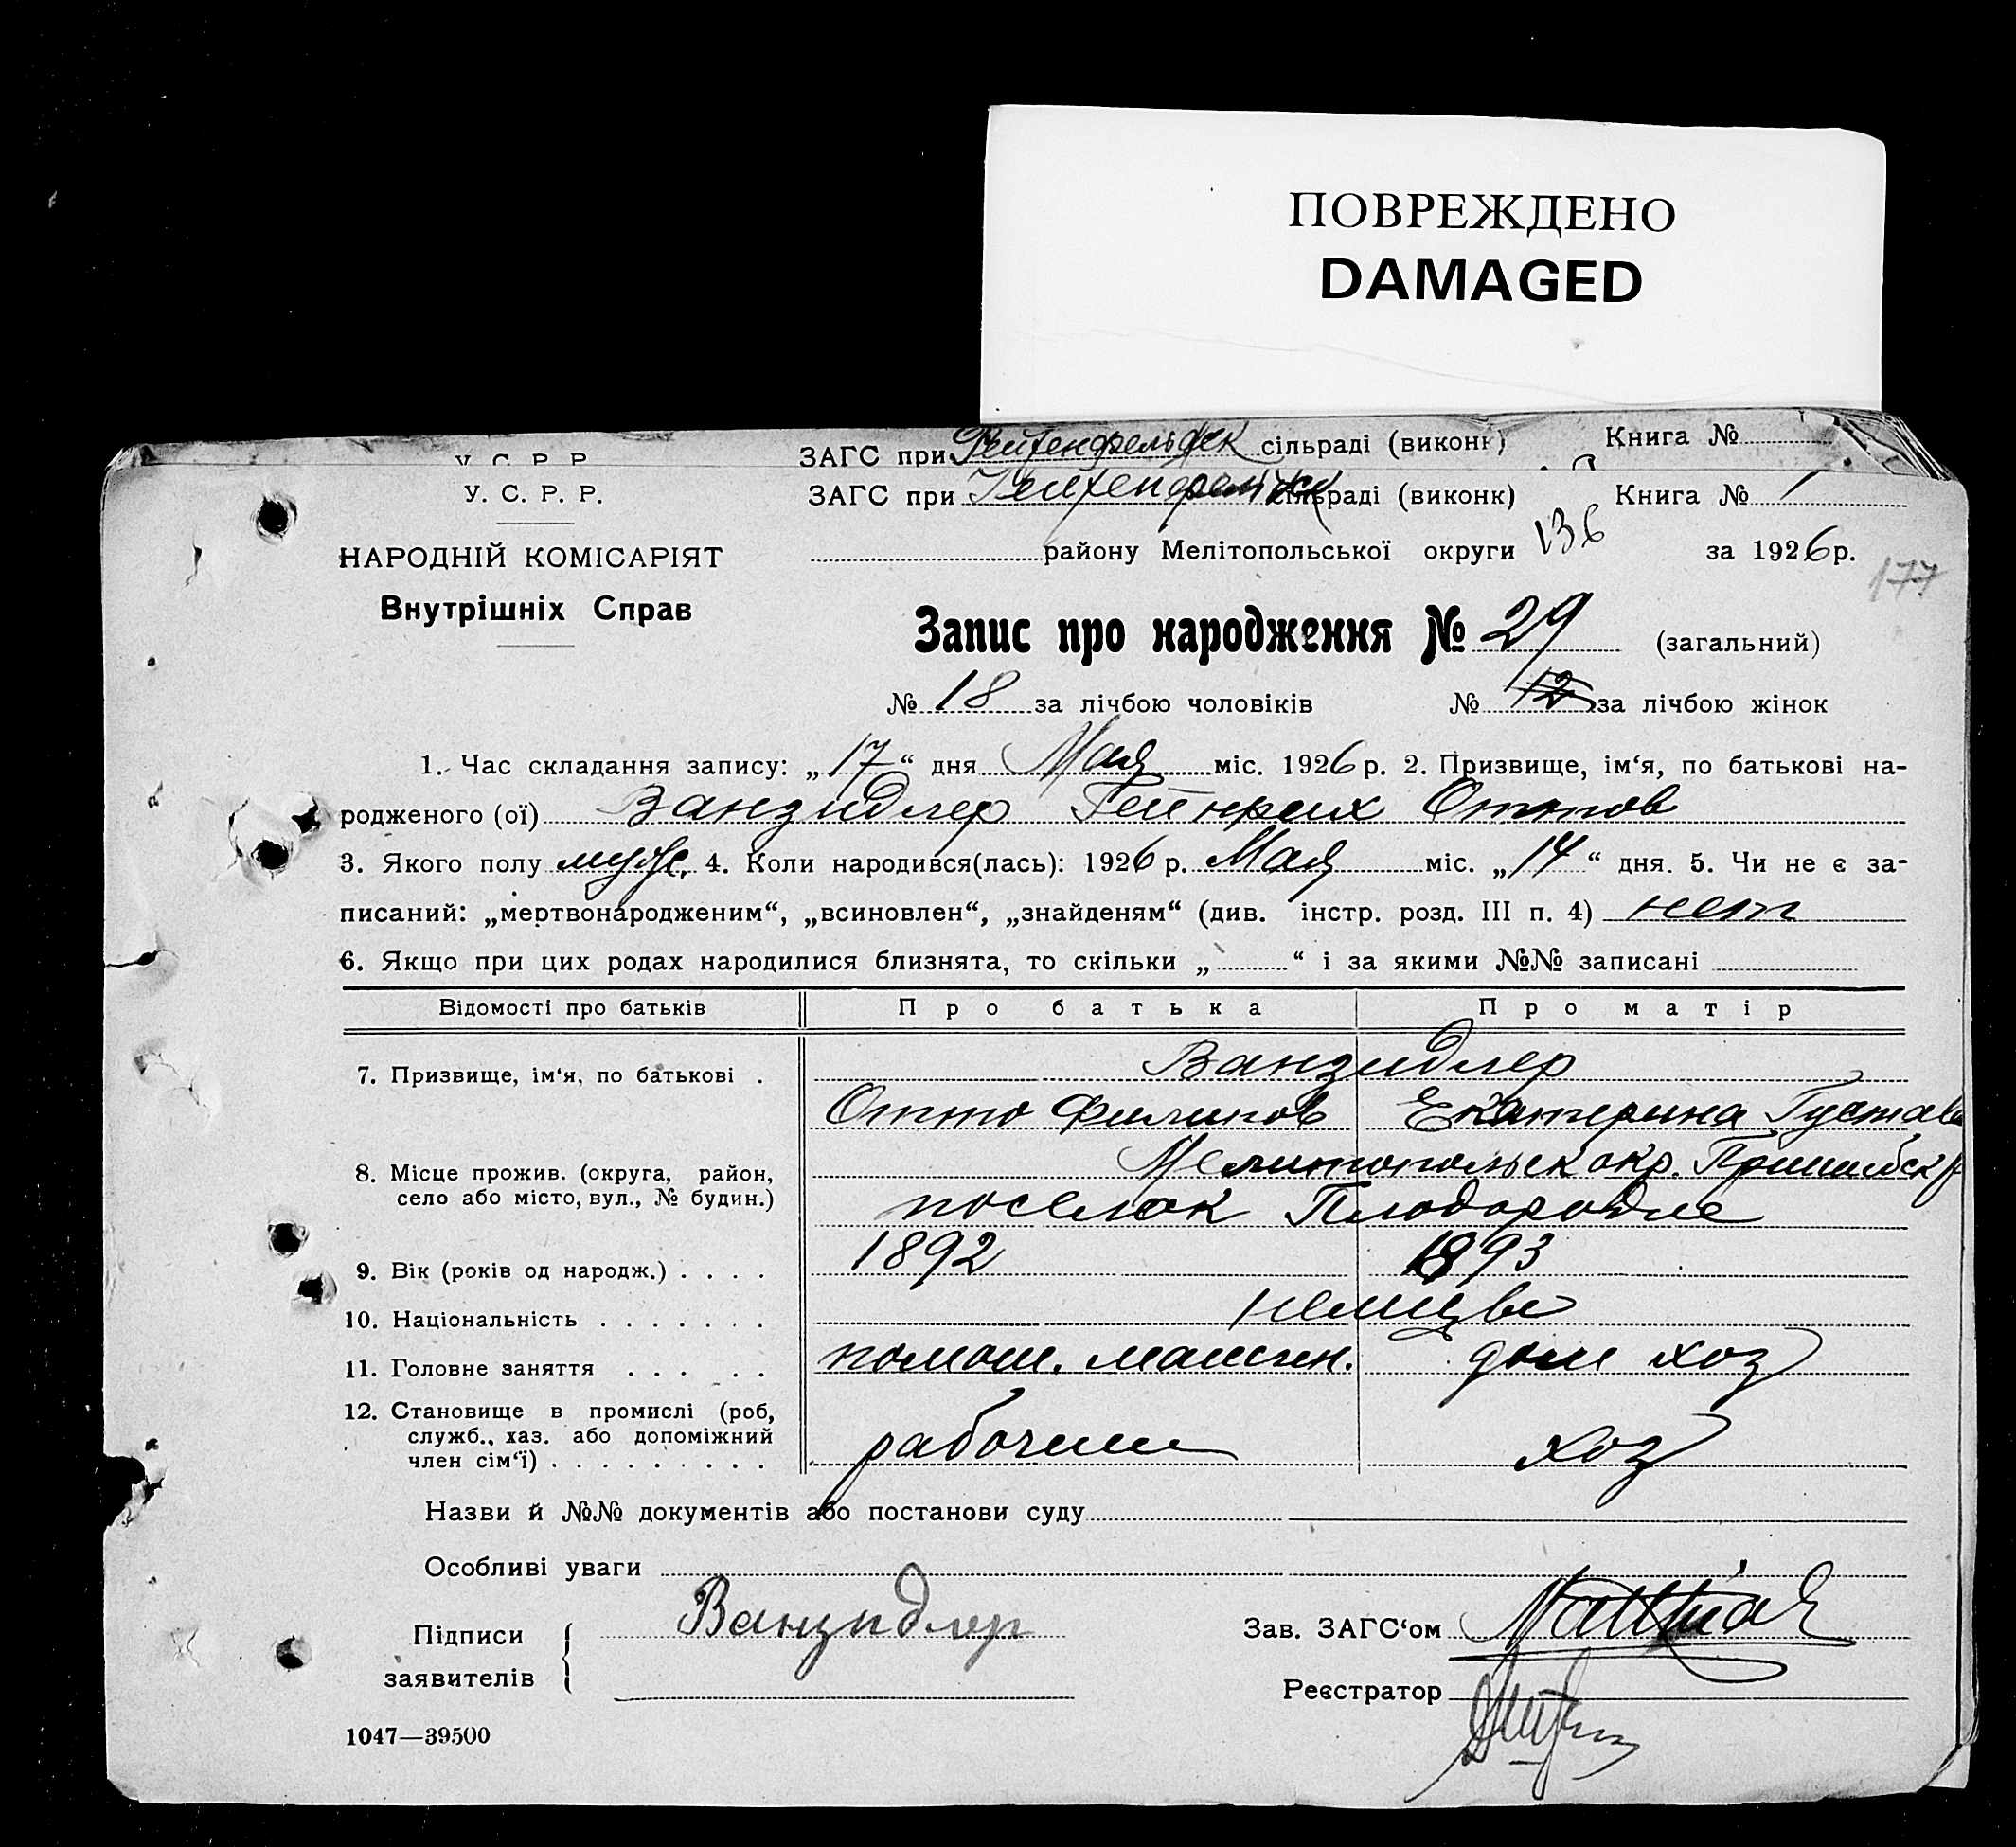 ПОВРЕЖДЕНО
DAMAGED
У. С. Р. Р.
ЗАГС при Рейхенфельдск сільраді (виконк) Книга №
У. С. Р. Р.
ЗАГС при сільраді (виконк) Книга № 1
НАРОДНІЙ КОМІСАРІЯТ
району Мелітопольської округи 136 за 1926 р.
177
Внутрішніх Справ
Запис про народження № 29 (загальний)
№ 18 за лічбою чоловіків № 12 за лічбою жінок
1. Час складання запису: „17“ дня Мая міс. 1926 р. 2. Призвище, ім‘я, по батькові на-
родженого (ої) Ванзидлер Гейнрих Оттов
3. Якого полу муж. 4. Коли народився(лась): 1926 р. Мая міс. „14“ дня. 5. Чи не є за-
писаний: „мертвонародженим“, „всиновлен“, „знайденям“ (див. інстр. розд. III п. 4) нет
6. Якщо при цих родах народилися близнята, то скільки „ “ і за якими №№ записані
Відомості про батьків Про батька Про матір
7. Призвище, ім‘я, по батькові . Ванзидлер
Отто Филипов Екатерина Густав
8. Місце прожив. (округа, район, Мелитопольск окр. Пришибск р
село або місто, вул., № будин.) поселок Плодородие
9. Вік (років од народж.) . . . . 1892 1893
10. Національність . . . . . . . немцы
11. Головне заняття . . . . . . помош. машин. дом хоз
12. Становище в промислі (роб,
служб., хаз. або допоміжний
член сім‘ї) . . . . . . . . . рабочии хоз
Назви й №№ документів або постанови суду
Особливі уваги
Підписи
заявителів
Ванзидлер
Зав. ЗАГС‘ом
Реєстратор
1047—39500